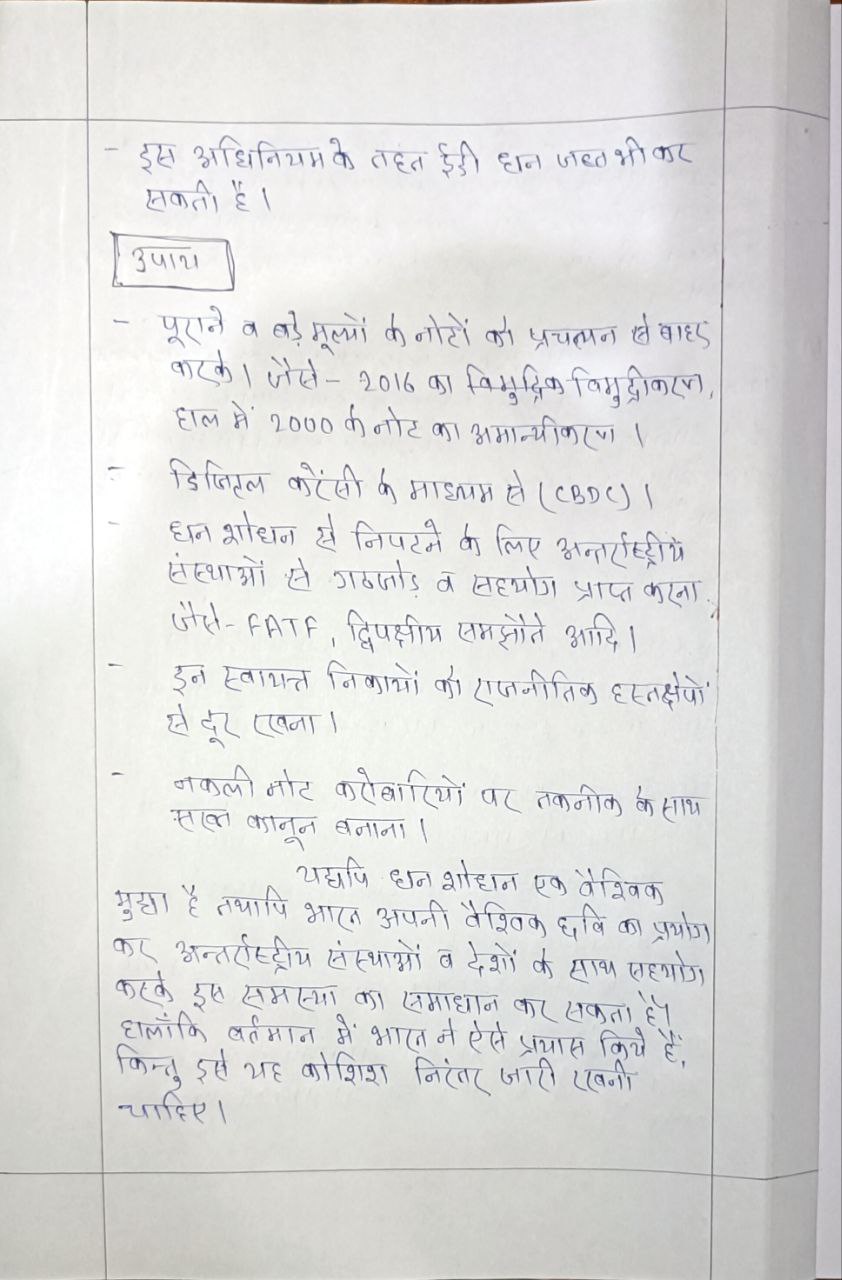 - इस अधिनियम के तहत ईडी धन जब्त भी कर
सकती है।
उपाय
- पूराने व बड़े मूल्यों के नोटों को प्रचलन से बाहर
करके। जैसे- 2016 का विमुद्रिक विमुद्रीकरण,
हाल में 2000 के नोट का अमान्यीकरण।
- डिजिटल करेंसी के माध्यम से (CBDC)।
- धन शोधन से निपटने के लिए अन्तर्राष्ट्रीय
संस्थाओं से गठजोड़ व सहयोग प्राप्त करना
जैसे- FATF, द्विपक्षीय समझौते आदि।
- इन स्वायत्त निकायों को राजनीतिक हस्तक्षेपों
से दूर रखना।
- नकली नोट करोबारियों पर तकनीक के साथ
सख्त कानून बनाना।
यद्यपि धन शोधन एक वैश्विक
मुद्दा है तथापि भारत अपनी वैश्विक छवि का प्रयोग
कर अन्तर्राष्ट्रीय संस्थाओं व देशों के साथ सहयोग
करके इस समस्या का समाधान कर सकता है।
हालाँकि वर्तमान में भारत ने ऐसे प्रयास किये हैं,
किन्तु इसे यह कोशिश निरंतर जारी रखनी
चाहिए।